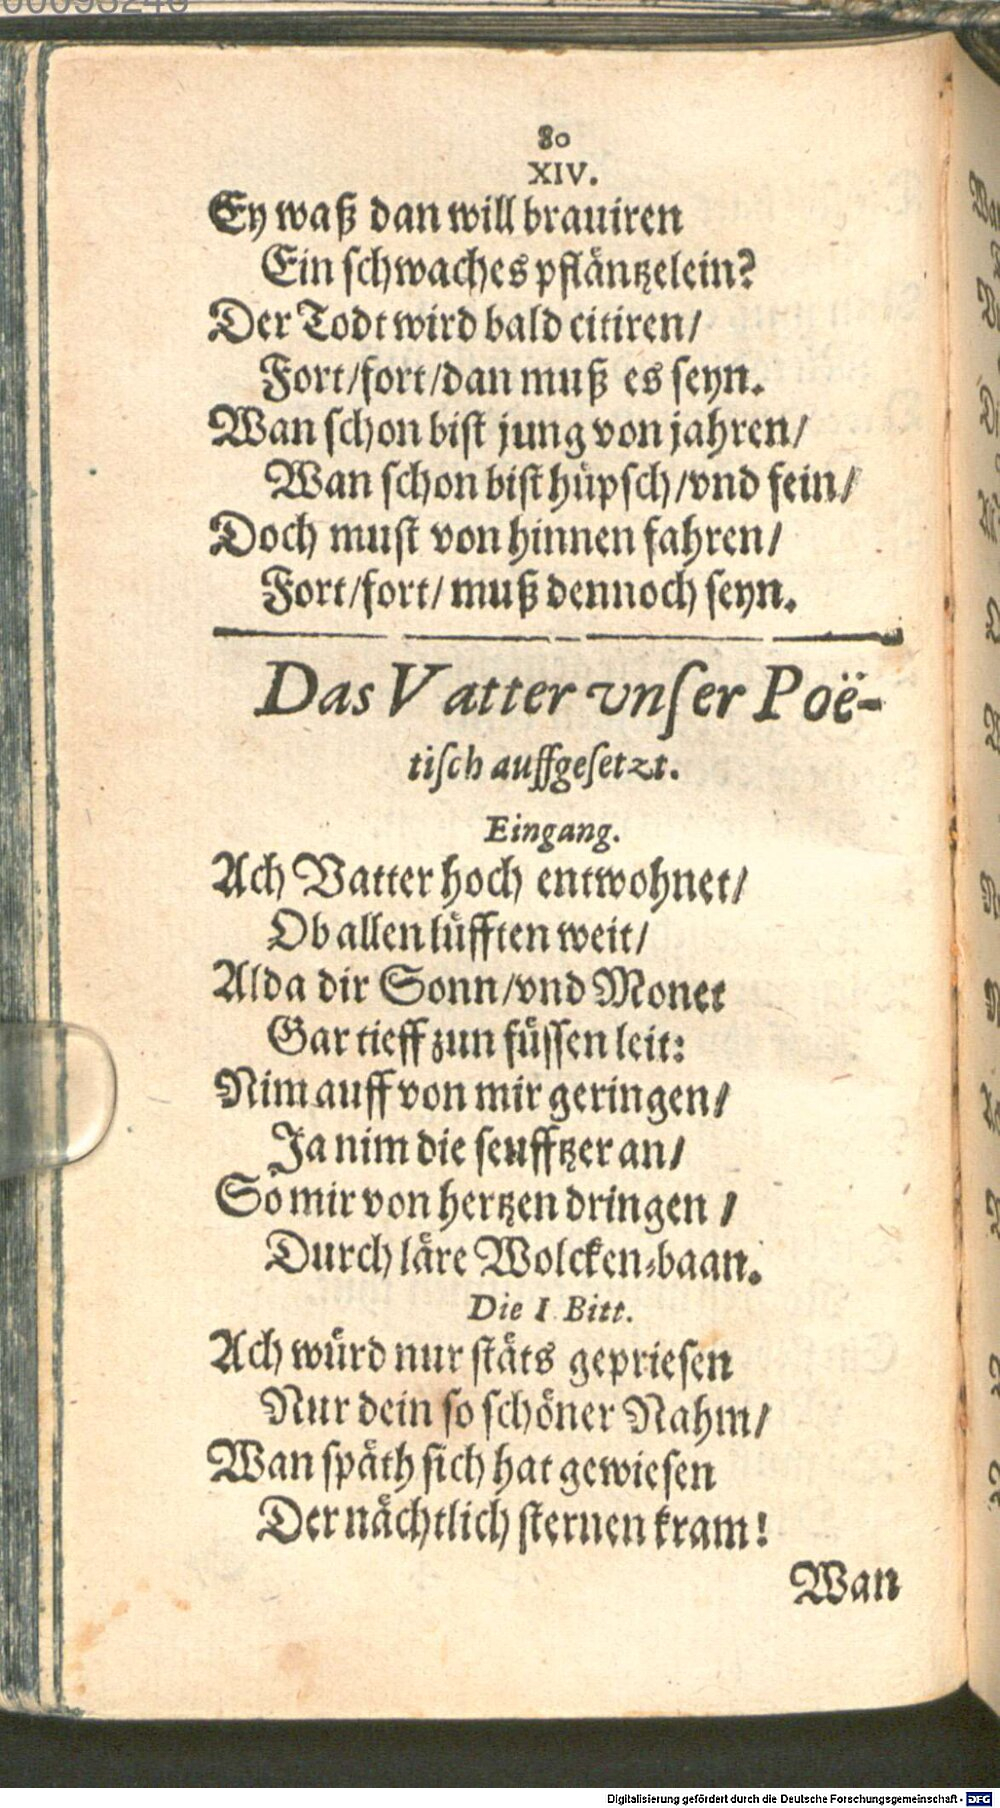 00095246
80
XIV.
Ey waß dan will brauiren
Ein schwaches pfläntzelein?
Der Todt wird bald citiren/
Fort/fort/dan muß es seyn.
Wan schon bist jung von jahren/
Wan schon bist hüpsch/vnd fein/
Doch must von hinnen fahren/
Fort/fort/ muß dennoch seyn.
Das Vatter vnſer Poë-
tiſch auffgeſetzt.
Eingang.
Ach Vatter hoch entwohnet/
Ob allen lüfften weit/
Alda dir Sonn/vnd Monet
Gar tieff zun füssen leit:
Nim auff von mir geringen/
Ja nim die seufftzer an/
So mir von hertzen dringen /
Durch läre Wolcken-baan.
Die I. Bitt.
Ach würd nur stäts gepriesen
Nur dein so schöner Nahm/
Wan späth sich hat gewiesen
Der nächtlich sternen kram!
Wan
Digitalisierung gefördert durch die Deutsche Forschungsgemeinschaft - DFG